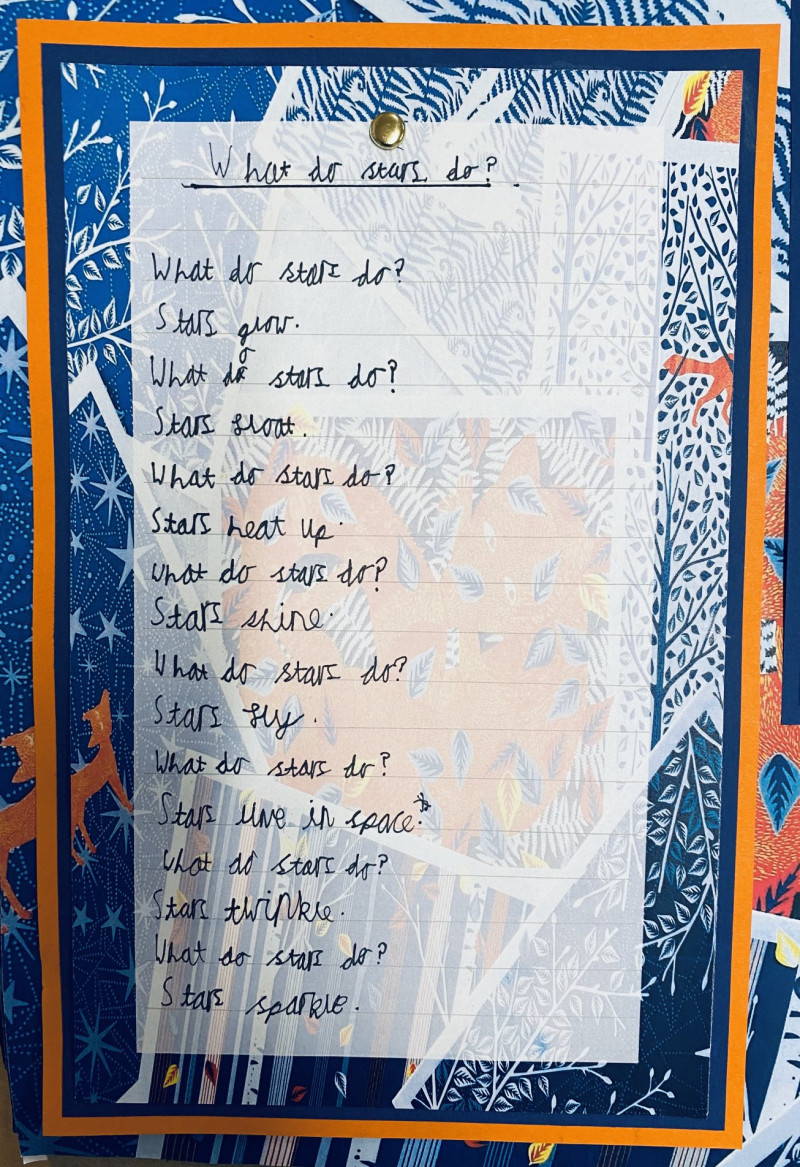 What do stars do?
What do stars do?
Stars glow.
What do stars do?
Stars float.
What do stars do?
Stars heat up.
What do stars do?
Stars shine.
What do stars do?
Stars fly.
What do stars do?
Stars live in space.
What do stars do?
Stars twinkle.
What do stars do?
Stars sparkle.